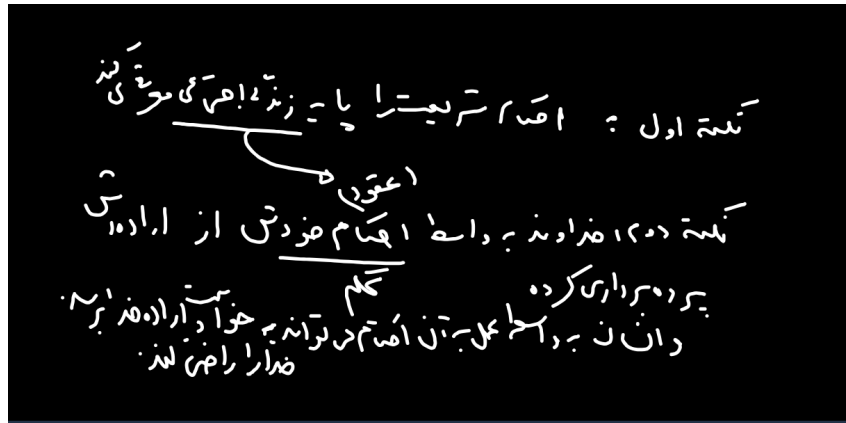 نکته اول : احکام شریعت را پایه زندگی اجتماعی معرفی می کند
(عقود)
نکته دوم: خداوند به واسطه احکام خودش از اراده اش
تکلم
پرده برداری کرده
و انسان به واسطه عمل به آن احکام می تواند به خواست و اراده خدا برسد.
خدا را راضی کند.